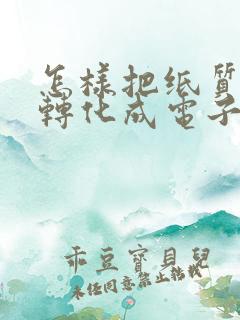 怎樣把纸質
轉化成電子
乖豆寶貝兒
未经同意禁止粘贴